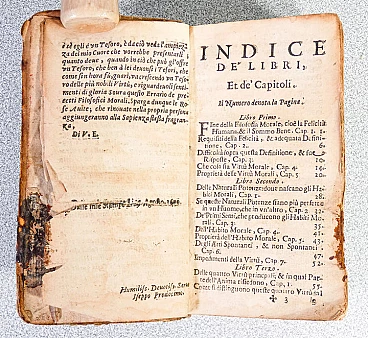 ed egli è vn Tesoro, e da ciò veda l'ampiez-
za del mio Cuore che vorrebbe presentarli
quanto deue, quando in ciò che può gl'offre
vn Tesoro, che ben à lei deuansi i Tesori, che
come sin hora
do delle più nobili Virtù, e riguardeuoli senti-
menti di gloria
Filosofici Morali, Sparga dunque le Ro-
se Auite, che innouate nella propria persona
aggiungeranno alla Sapienza festa fragan-
za.
Di V. E.
Humiliss. Deuotiss. Seru.
Iseppo Prodocimo.
INDICE
DE' LIBRI,
Et de' Capitoli.
Il Numero denota la Pagina.
Libro Primo.
Fine della Filosofia Morale, cioè la Felicità
Humana, & il Sommo Bene, Cap. 1. 1.
Requisiti della Felicità, & adequata Defini-
tione, Cap. 2. 6.
Difficoltà sopra questa Definitione, & sue
Risposte, Cap. 3. 10.
Che cosa sia Virtù Morale, Cap. 4. 14.
Proprietà delle Virtù Morali, Cap. 5. 20.
Libro Secondo.
Delle Naturali Potenze doue nascano gli Ha-
bici Morali, Cap. 1. 28.
Se queste Naturali Potenze siano più perfette
in vn Huomo, che in vn'altro, Cap. 2. 32.
De' Primi Semi, che producono gli Habiti Mo-
rali, Cap. 3. 35.
Dell'Habito Morale, Cap. 4. 41.
Proprietà dell'Habito Morale, Cap. 5. 43.
Degli Atti Spontanei, & non Spontanei,
Cap. 6. 47.
Impedimenti della Virtù, Cap. 7. 52.
Libro Terzo.
Delle quattro Virtù principali, & in qual Par-
te dell'Anima risiedono, Cap. 1. 55.
Come si distinguono queste quattro Vir-
3